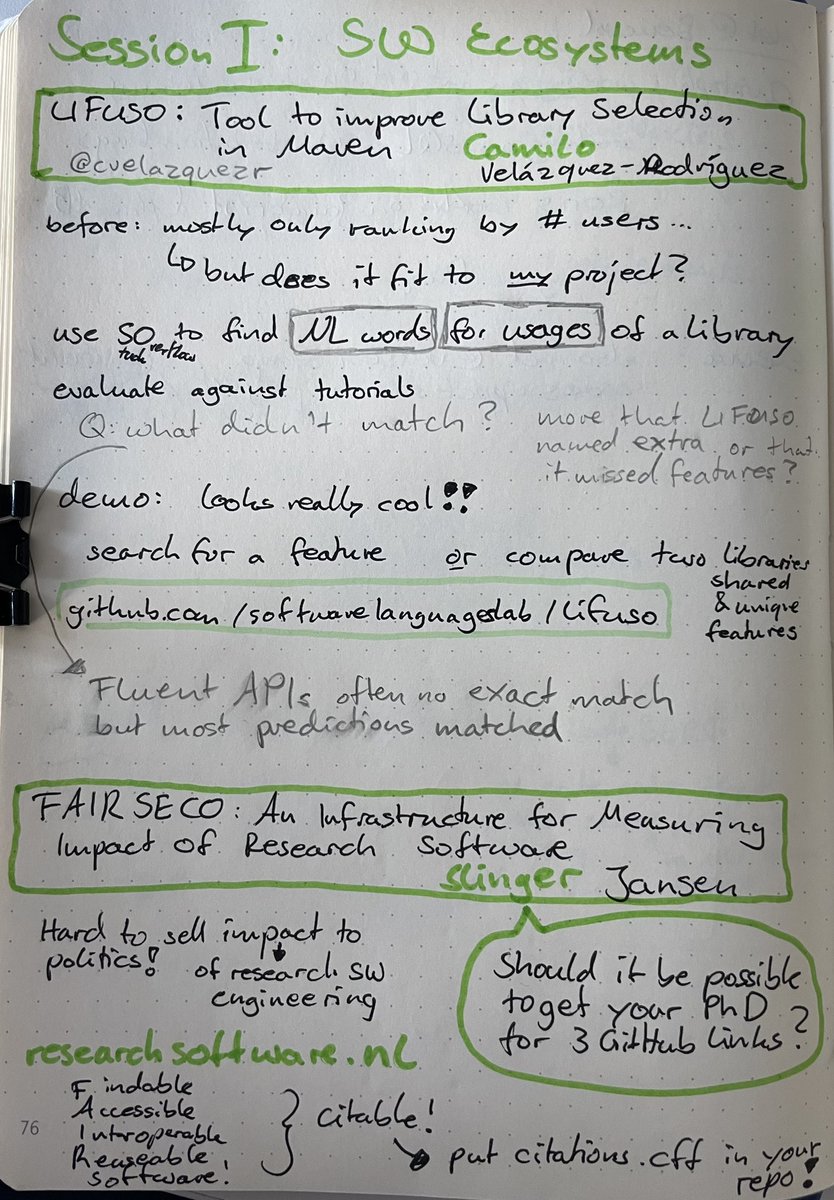 Session I: SW Ecosystems
LIFUSO: Tool to improve Library Selection
in Maven Camilo
@cvelazquezr Velázquez-Rodríguez
before: mostly only ranking by # users...
↳ but does it fit to my project?
use SO to find NL words for usages of a library
tack verflow
evaluate against tutorials
Q: what didn't match? more that LIFUSO
named extra or that
it missed features?
demo: looks really cool!!
search for a feature or compare two libraries
shared
& unique
features
github.com/softwarelanguageslab/lifuso
Fluent APIs often no exact match
but most predictions matched
FAIRSECO: An Infrastructure for Measuring
Impact of Research Software
Slinger Jansen
Hard to sell impact to
politics! of research SW
engineering
Should it be possible
to get your PhD
for 3 GitHub Links?
researchsoftware.nl
Findable
Accessible
Interoperable
Reuseable
Software!
citable!
put citations.cff in your
repo!
76